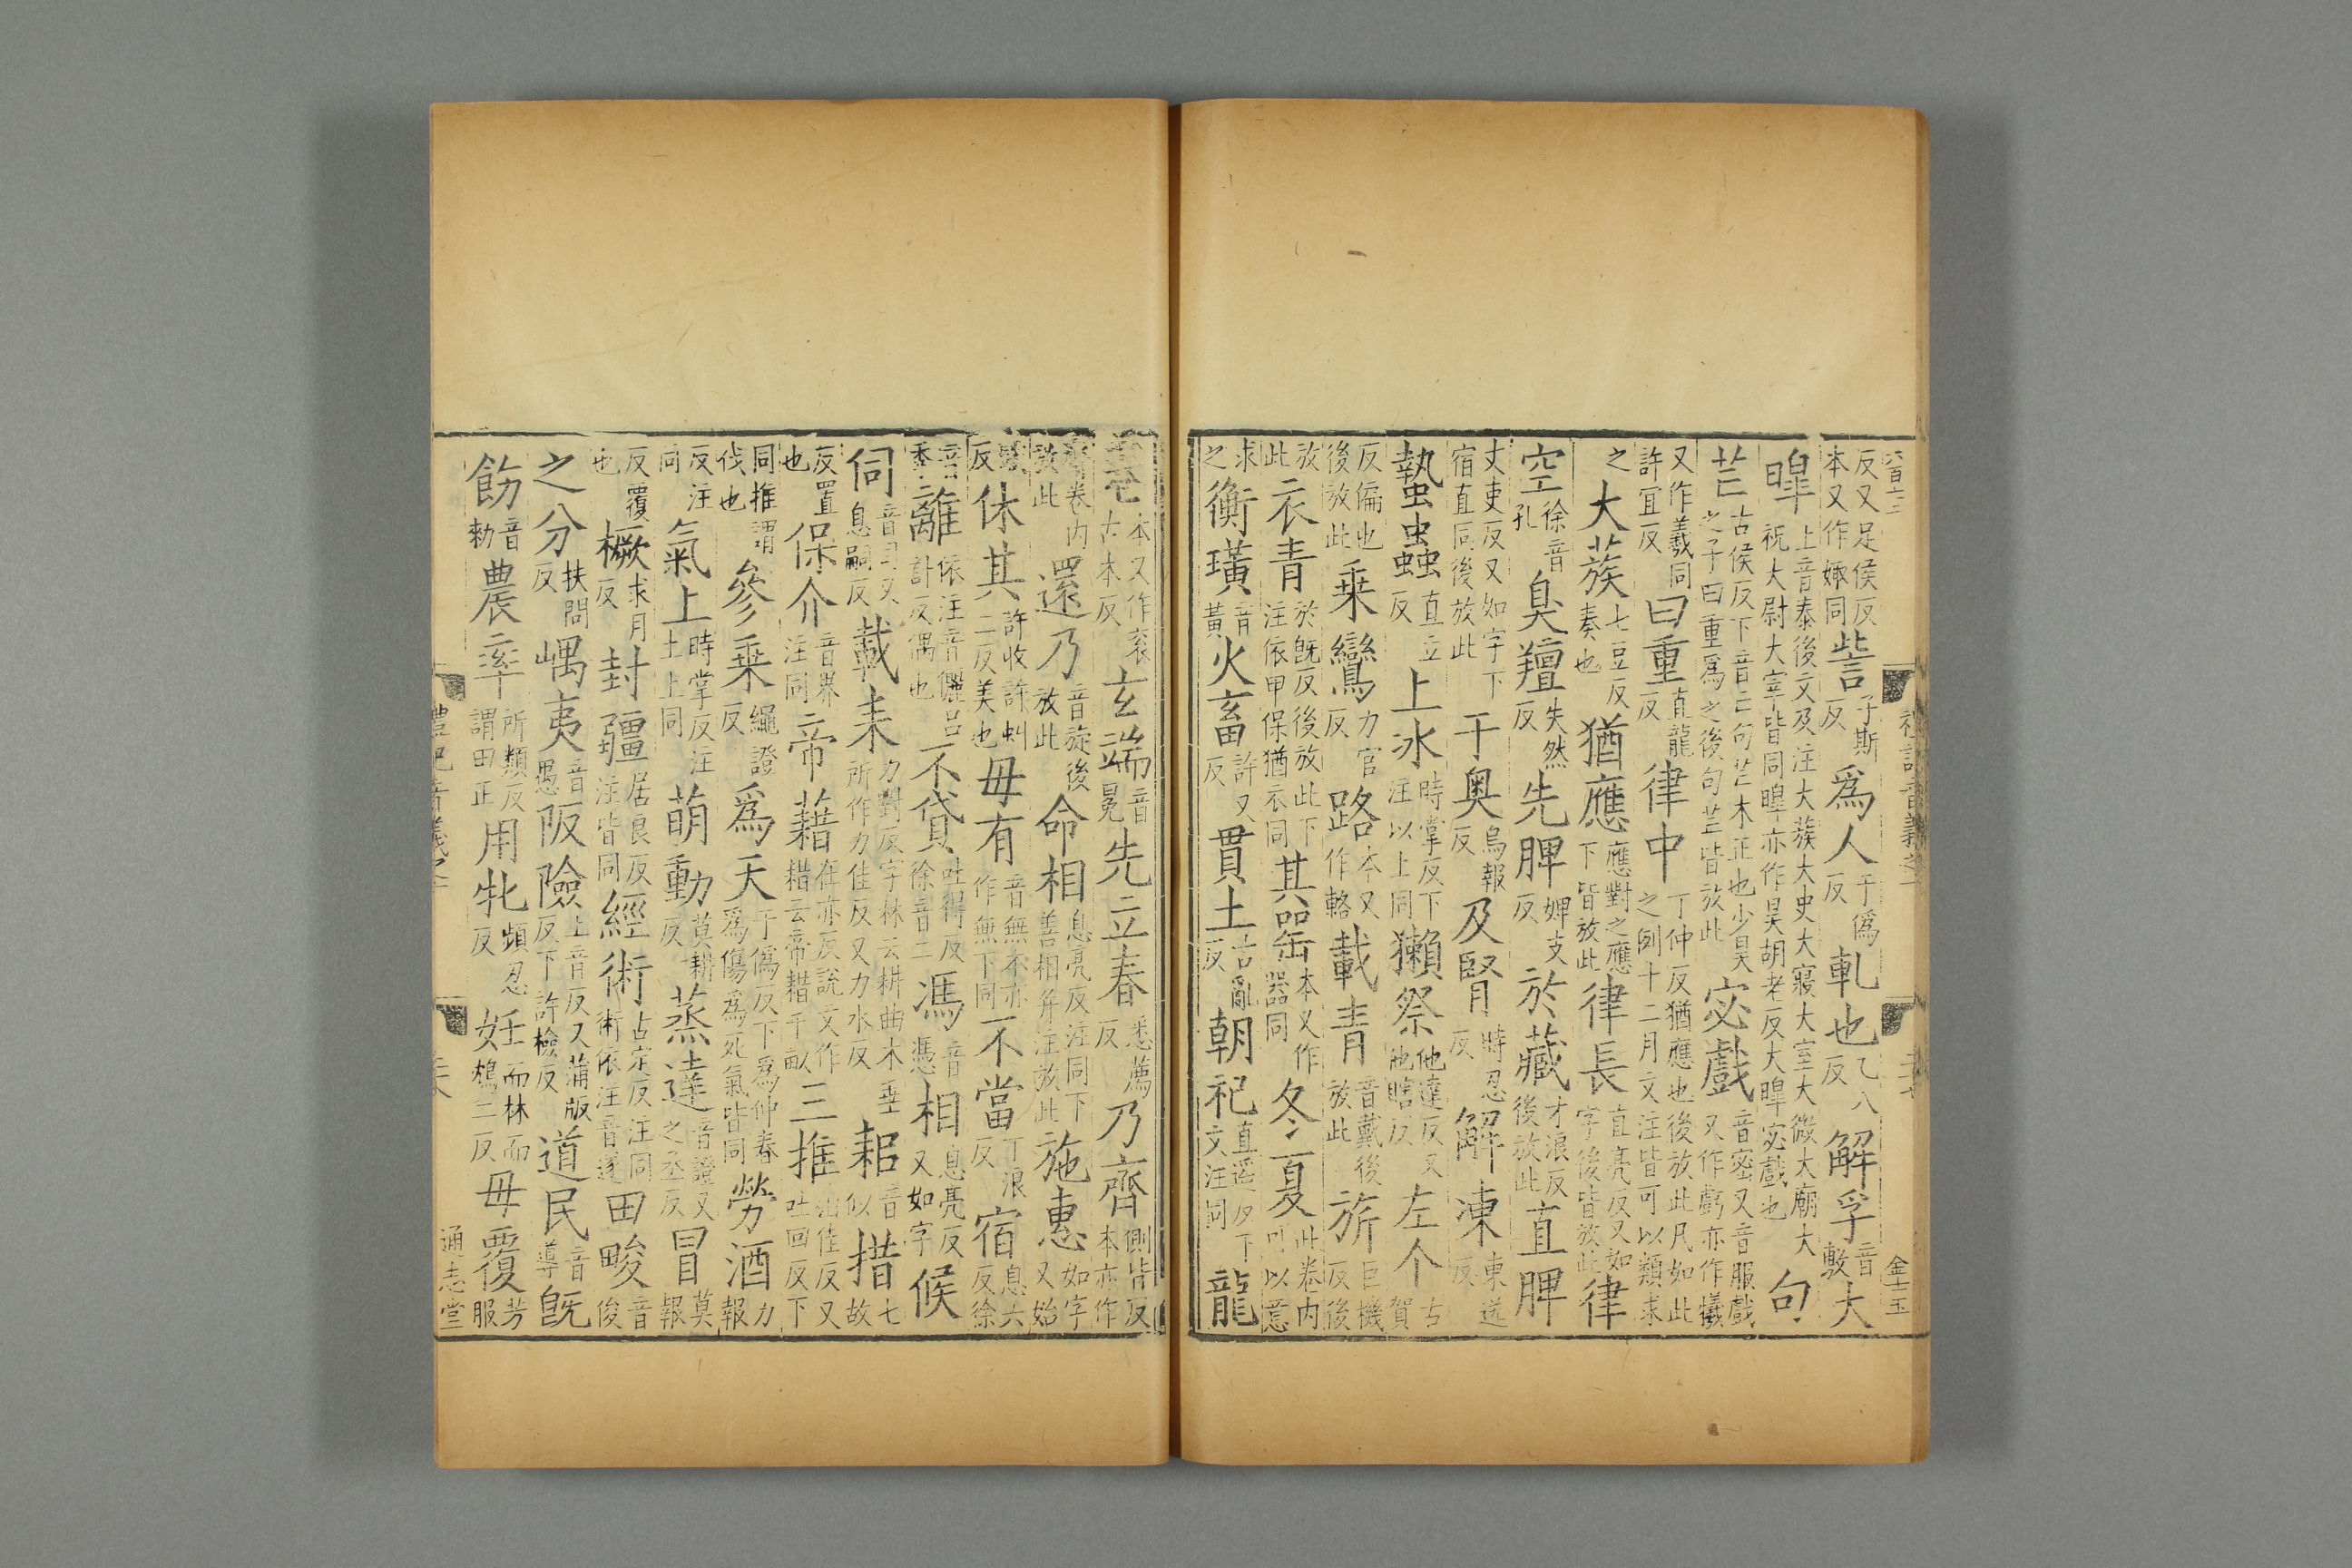 反又足侯反本又作娵同訾子斯反爲人于僞反軋也乙八反解孚音敷大
暤上音泰後文及注大蔟大史大寢大室大微大廟大祝大尉大宰皆同暤亦作昊胡老反大暤宓戲也句
芒古侯反下音亡句芒木正也少昊之子曰重爲之後句芒皆放此宓戲音密又音服戲又作虧亦作犧
又作羲同許宜反曰重直龍反律中丁仲反猶應也後放此凡如此之例十二月文注皆可以類求
之大蔟七豆反奏也猶應應對之應下皆放此律長直亮反又如字後皆放此律
空徐音孔臭羶失然反先脾婢支反於藏才浪反後放此直脾
丈吏反又如字下宿直同後放此干奥烏報反及腎時忍反解凍東送反
蟄蟲直立反上冰時掌反下注以上同獺祭他達反又他瞎反左个古賀
反偏也後放此乗鸞力官反路本又作輅載青音戴後放此旂巨機反後
放此衣青於既反後放此下注依甲保猶衣同其噐本又作器同冬夏此卷内可以意
求之衡璜音黄火畜許又反貫土古亂反朝祀直遥反下文注同龍
卷本又作衮古本反玄端音冕先立春悉薦反乃齊側皆反本亦作
齋卷内放此還乃音旋後放此命相息亮反注同下善相并注放此施惠如字又始
豉反休其許收許虯二反美也毋有音無本亦作無下同不當丁浪反宿息六反徐
音秀離依注音儷吕計反偶也不貸吐得反徐音二馮音憑相息亮反又如字候
伺音司又息嗣反載耒力對反字林云耕曲木垂所作力佳反又力水反耜音似措七故
反置也保介音界注同帝藉在亦反說文作耤云帝耤千畝三推出佳反又吐回反下
同推謂伐也參乗繩證反爲天于僞反下爲仲春爲傷爲死氣皆同勞酒力報
反注同氣上時掌反注土上同萌動莫耕反蒸達音證又之丞反冒莫報
反覆也橛求月反封疆居良反注皆同經術古定反注同術依注音遂田畯音俊
之分扶問反嵎夷音愚阪險上音反又蒲版反下許檢反道民音導旣
飭音勑農率所類反謂田正用牝頻忍反妊而林而鴆二反毋覆芳服
六百六三
禮記音義之一
二十七
金士玉
禮記音義之一
二十八
通志堂